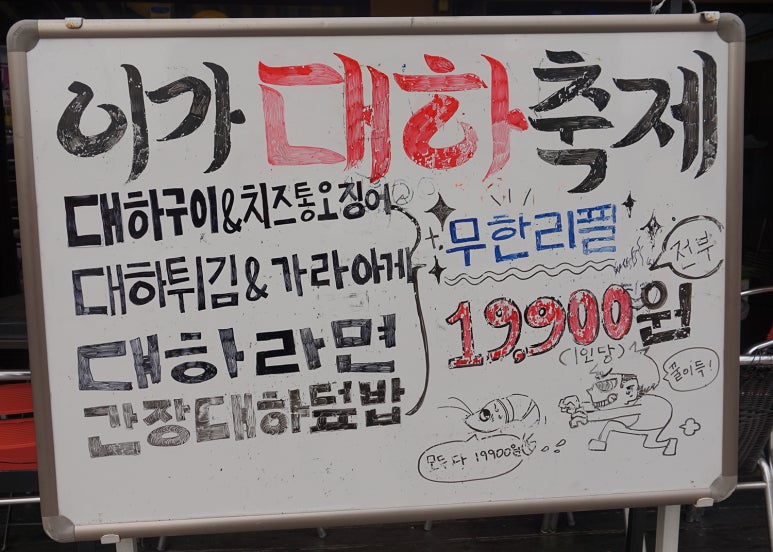 이가 대하축제
대하구이&치즈통오징어
대하튀김&가라아게
대하라면
간장대하덮밥
무한리필
전부
19,900원
(1인당)
끝이두!
모두다 19900원